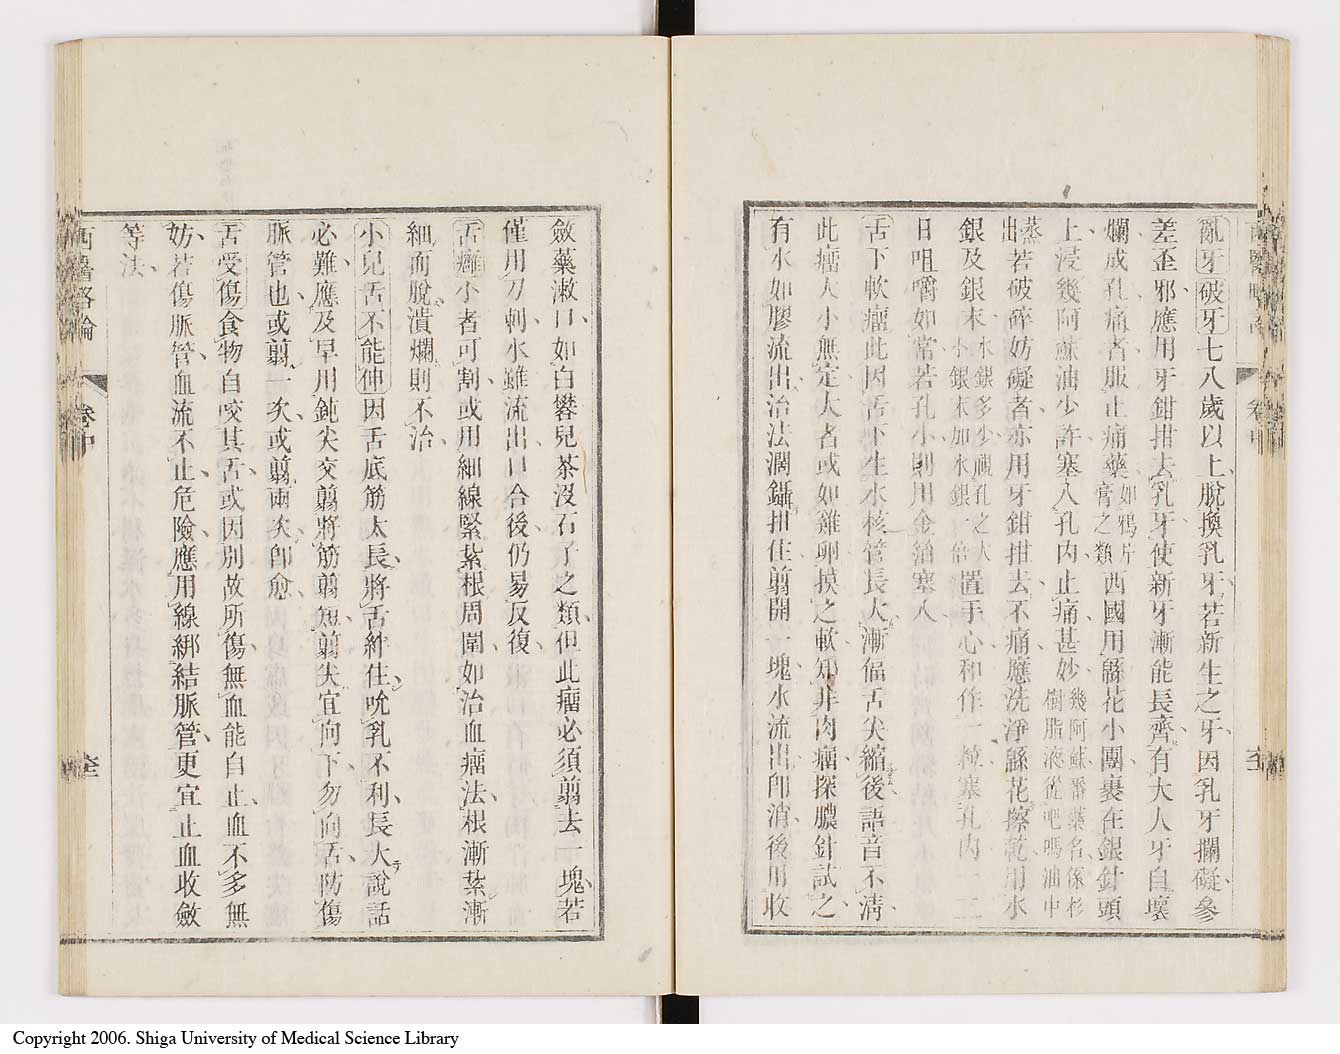 亂牙破牙七八歲以上脫換乳牙若新生之牙因乳牙攔礙參
差歪邪應用牙鉗拑去乳牙使新牙漸能長齊有大人牙自壞
爛成孔痛者服止痛藥如鴉片膏之類西國用緜花小團裹在銀針頭
上浸幾阿蘇油少許塞入孔內止痛甚妙幾阿蘇番藥名係杉樹脂液從吧嗎油中
蒸出若破碎妨礙者亦用牙鉗拑去不痛應洗淨緜花擦乾用水
銀及銀末水銀多少視孔之大小銀末如水銀一倍置手心和作一粒塞孔內一二
日咀嚼如常若孔小則用金箔塞入
舌下軟瘤此因舌下生水核管長大漸偪舌尖縮後語音不清
此瘤大小無定大者或如雞卵摸之軟知非肉瘤探膿針試之
有水如膠流出治法濶鑷拑住剪開一塊水流出卽消後用收
斂藥漱口如白礬兒茶沒石子之類但此瘤必須剪去一塊若
僅用刀刺水雖流出口合後仍易反復
舌癰小者可割或用細線緊紮根周圍如治血瘤法根漸紮漸
細而脫潰爛則不治
小兒舌不能伸因舌底筋太長將舌絆住吮乳不利長大說話
必難應及早用鈍尖交剪將筋剪短剪尖宜向下勿向舌防傷
脈管也或剪一次或剪兩次卽愈
舌受傷食物自咬其舌或因別故所傷無血能自止血不多無
妨若傷脈管血流不止危險應用線綁結脈管更宜止血收斂
等法
西醫略論
卷中